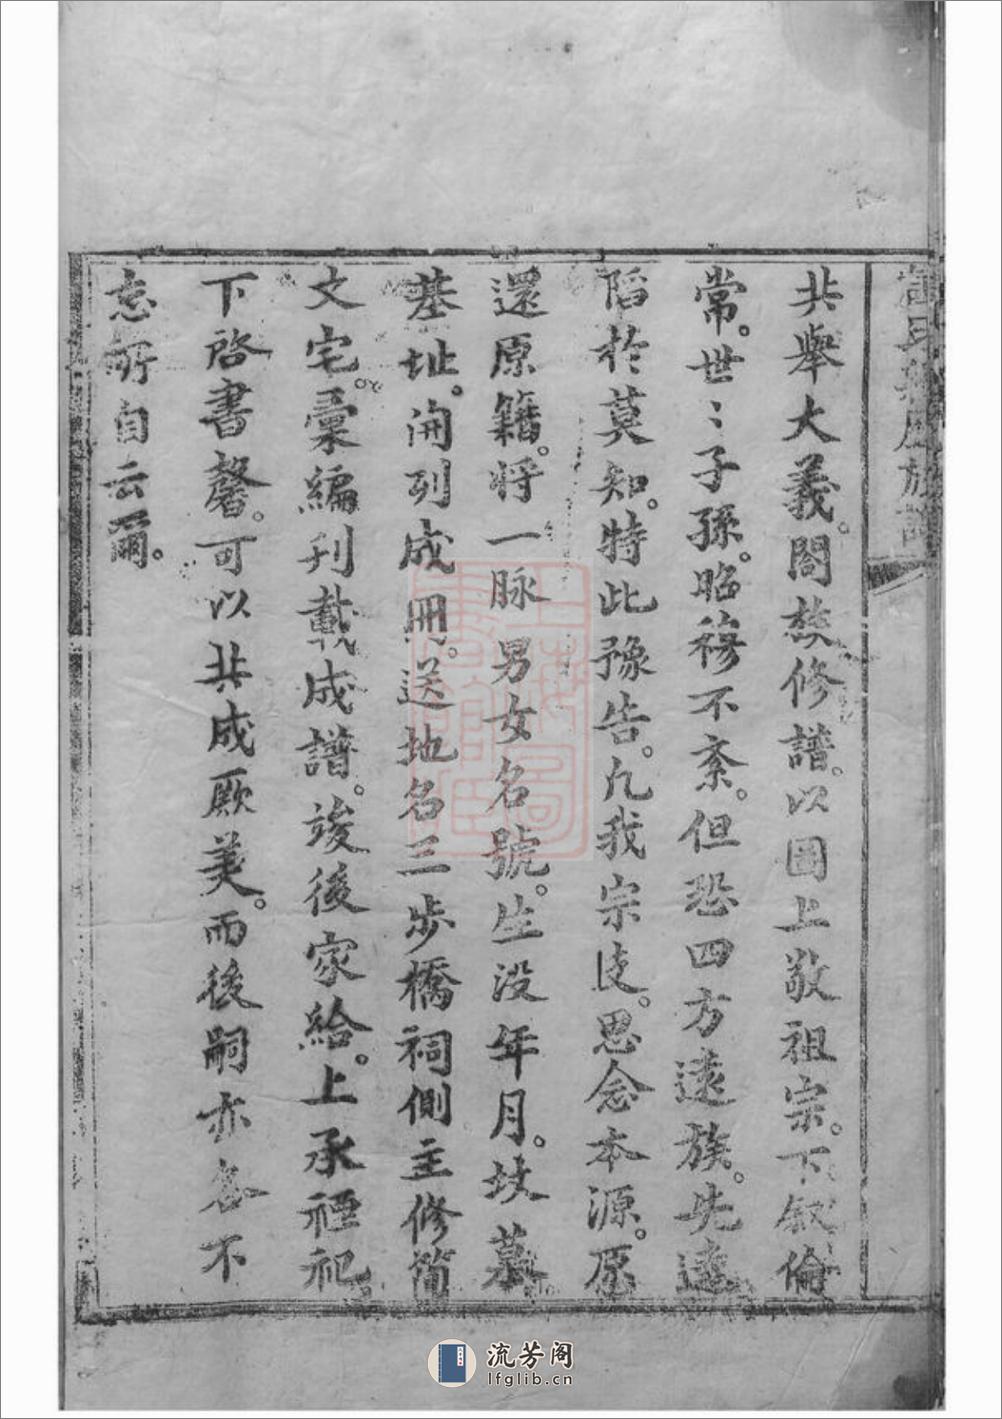 共舉大義。閤族修譜。以圖上敬祖宗。下叙倫
常。世〻子孫。昭穆不紊。但恐四方遠族。先遠
陷於莫知。特此豫告。凡我宗族。思念本源。原
還原籍。将一脉男女名號。生没年月。坟墓
基址。開列成冊。送地名三步橋祠側主修簡
文宅。彙編刊載成譜。竣後家給。上承禋祀。
下啓書馨。可以共成厥美。而後嗣亦各不
忘所自云爾。
上海圖書館藏
流芳阁
lfglib.cn